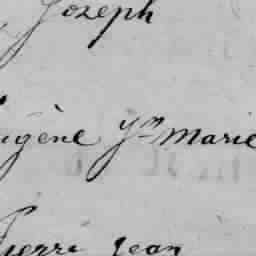 Joseph
Eugène ym marie
Pierre Jean